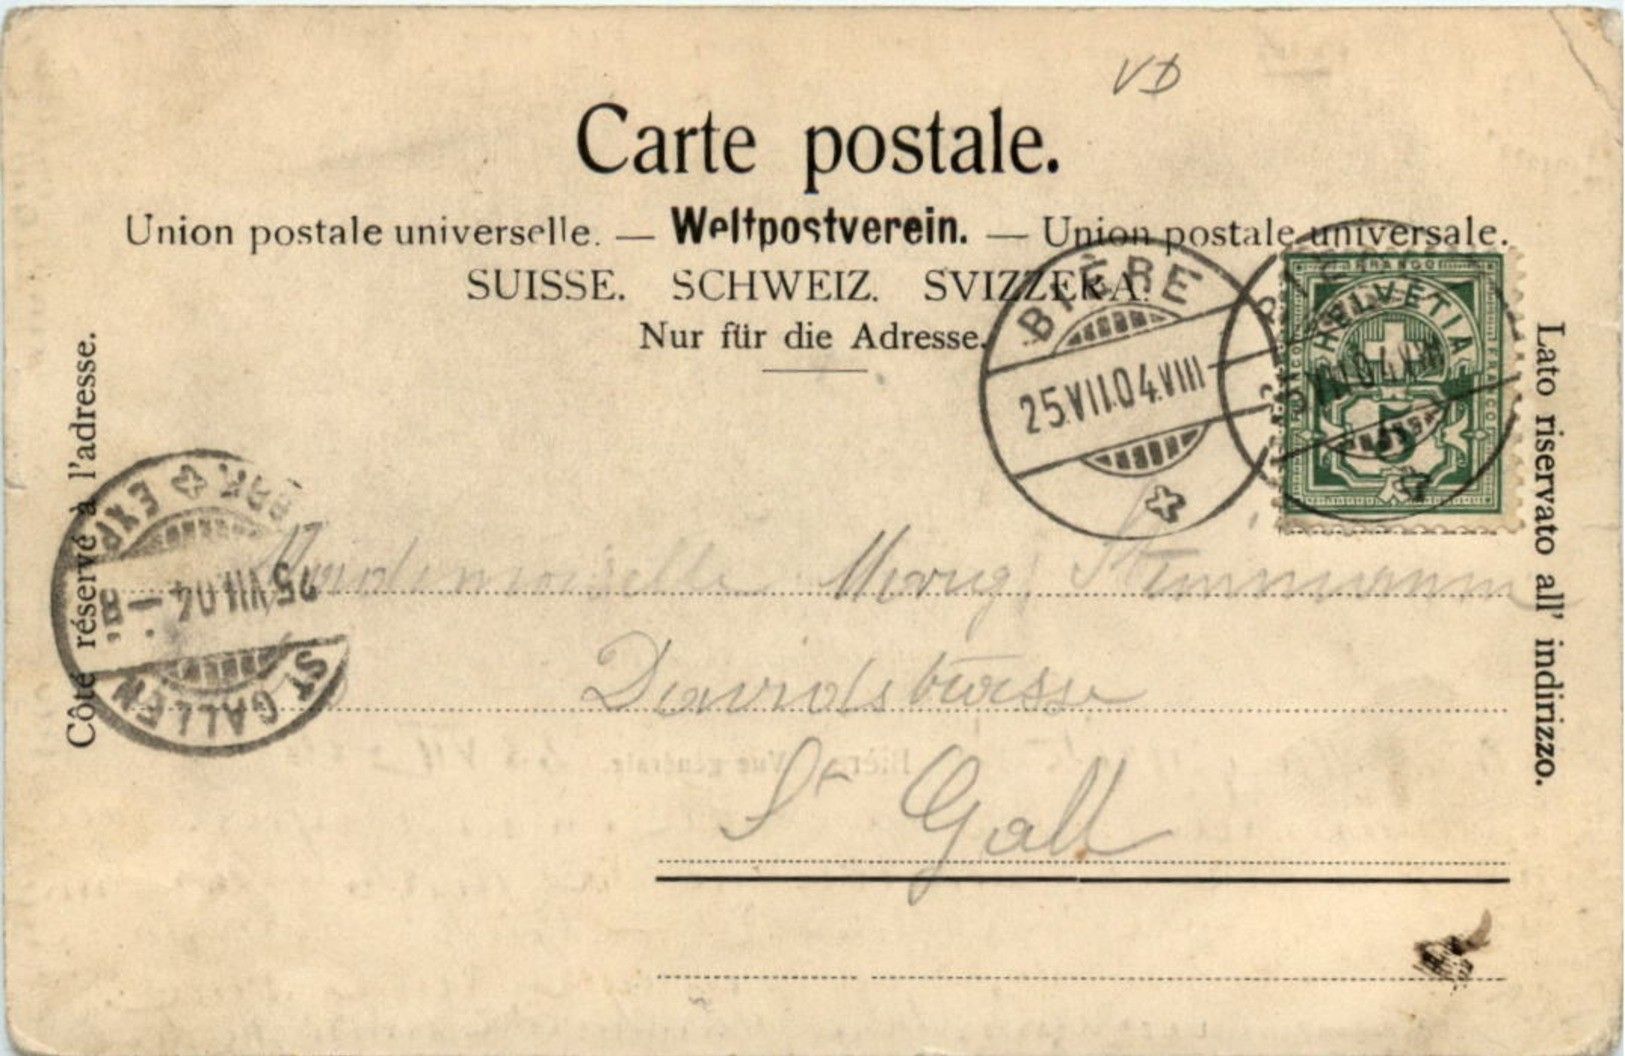 VD
Carte postale.
Union postale universelle. — Weltpostverein. — Union postale universale.
SUISSE. SCHWEIZ. SVIZZERA.
Nur für die Adresse.
Côté réservé à l'adresse.
Lato riservato all' indirizzo.
BIÈRE
25.VII.04.VIII
FRANCO
HELVETIA
5
ST. GALLEN
25.VII.04
EXP.
Mademoiselle Stemmann
Davidstrasse
St Gall
Bière Vue générale.